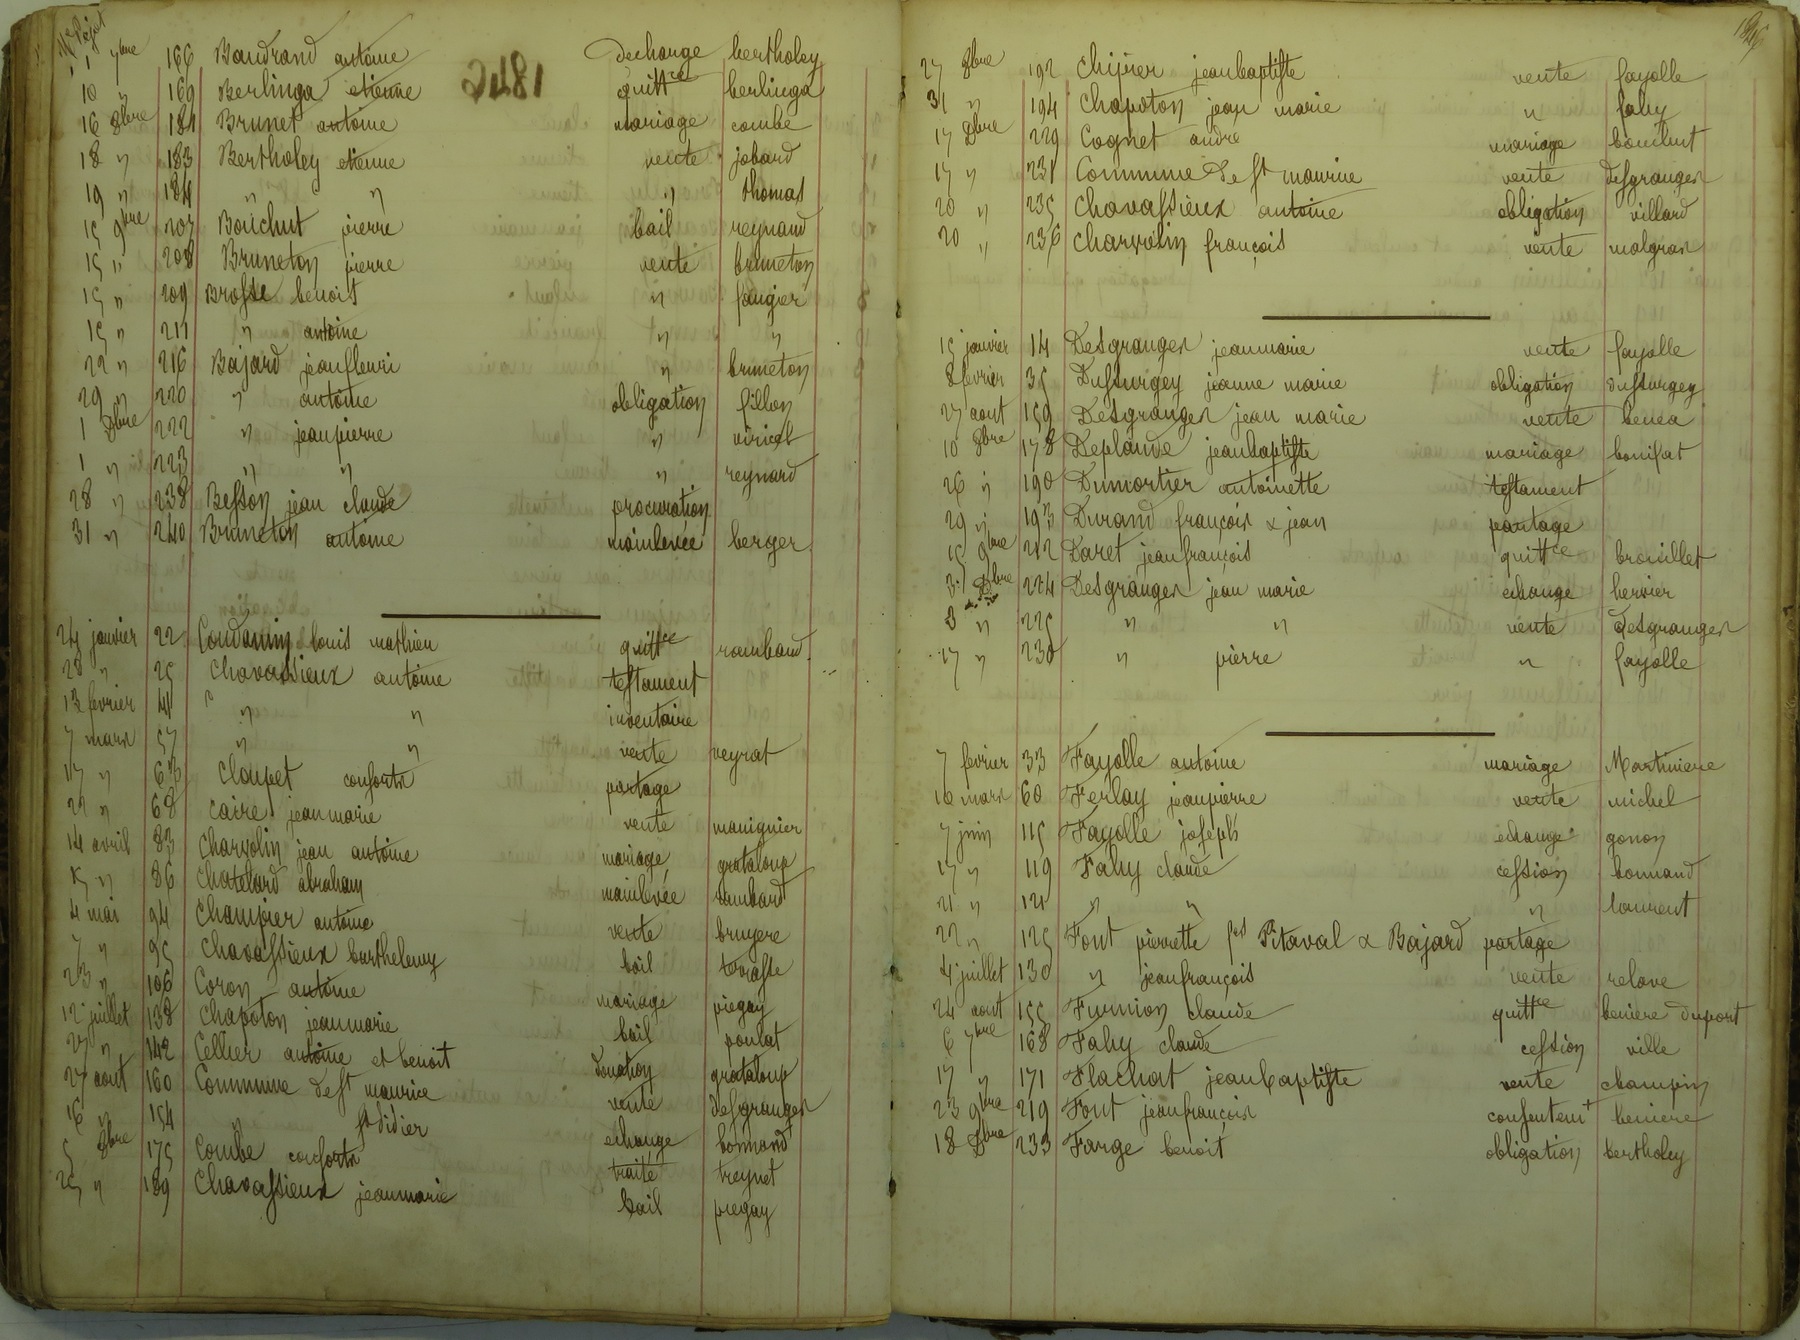 1846
1 7bre 166 Baudrand antoine decharge bertholey
10 " 169 Berlinga etienne quittce berlinga
16 8bre 181 Brunet antoine mariage combe
18 " 183 Bertholey etienne vente jobard
19 " 184 " " " thomas
15 9bre 207 Bouchut pierre bail reynaud
15 " 208 Bruneton pierre vente bruneton
15 " 209 Brosse benoit " fougier
15 " 211 " antoine " "
22 " 216 Bajard jeanfleuri " bruneton
29 " 220 " antoine obligation fillon
1 Dbre 222 " jeanpierre " viricel
1 " 223 " " " reynard
28 " 238 Besson jean claude procuration
31 " 240 Bruneton antoine mainlevée berger
24 janvier 22 louis mathieu quittce rambaud
28 " 25 Chavassieux antoine testament
13 fevrier 41 " " inventaire
7 mars 57 " " vente veyrat
17 " 63 Cloupet conforts partage
22 " 68 Caire jeanmarie vente manignier
14 avril 83 Charvolin jean antoine mariage grataloup
15 " 86 Chatelard abraham mainlevée
4 mai 94 Champier antoine vente bruyere
7 " 95 Chavassieux barthelemy bail terrasse
23 " 106 Coron antoine mariage piegay
12 juillet 138 Chapoton jeanmarie bail poulat
27 " 142 Cellier antoine et benoit donation grataloup
27 aout 160 Commune de st maurice vente desgranges
16 " 154 st didier echange bonnand
5 8bre 175 Combe conforts traité treynet
25 " 189 Chavassieux jeanmarie bail piegay
1846
27 8bre 192 Chipier jeanbaptiste vente fayolle
31 " 194 Chapoton jean marie " fahy
17 Dbre 229 Cognet andre mariage bouchut
17 " 231 Commune de st maurice vente desgranges
20 " 235 Chavassieux antoine obligation villard
20 " 236 Charvolin françois vente malgras
15 janvier 14 Desgranges jeanmarie vente fayolle
8 fevrier 35 Dussurgey jeanne marie obligation dussurgey
27 aout 159 Desgranges jean marie vente benea
10 8bre 178 Deplaude jeanbaptiste mariage bonifat
26 " 190 Dumortier antoinette testament
29 " 193 Durand françois & jean partage
15 9bre 212 Daret jeanfrançois quittce brouillet
3 Dbre 224 Desgranges jean marie echange hervier
3 " 225 " " vente Desgranges
17 " 230 " pierre " fayolle
7 fevrier 33 Fayolle antoine mariage Martiniere
16 mars 60 Ferlay jeanpierre vente michel
7 juin 115 Fayolle joseph echange gonon
17 " 119 Fahy claude cession bonnand
21 " 121 " " " laurent
22 " 125 Font pierrette Pitaval & Bajard partage
4 juillet 130 " jeanfrançois vente relave
24 aout 155 Furnion claude quittce beniere duport
6 7bre 168 Fahy claude cession ville
17 " 171 Flachat jeanbaptiste vente champin
23 9bre 219 Font jeanfrançois consentemt beniere
18 Dbre 233 Farge benoit obligation bertholey